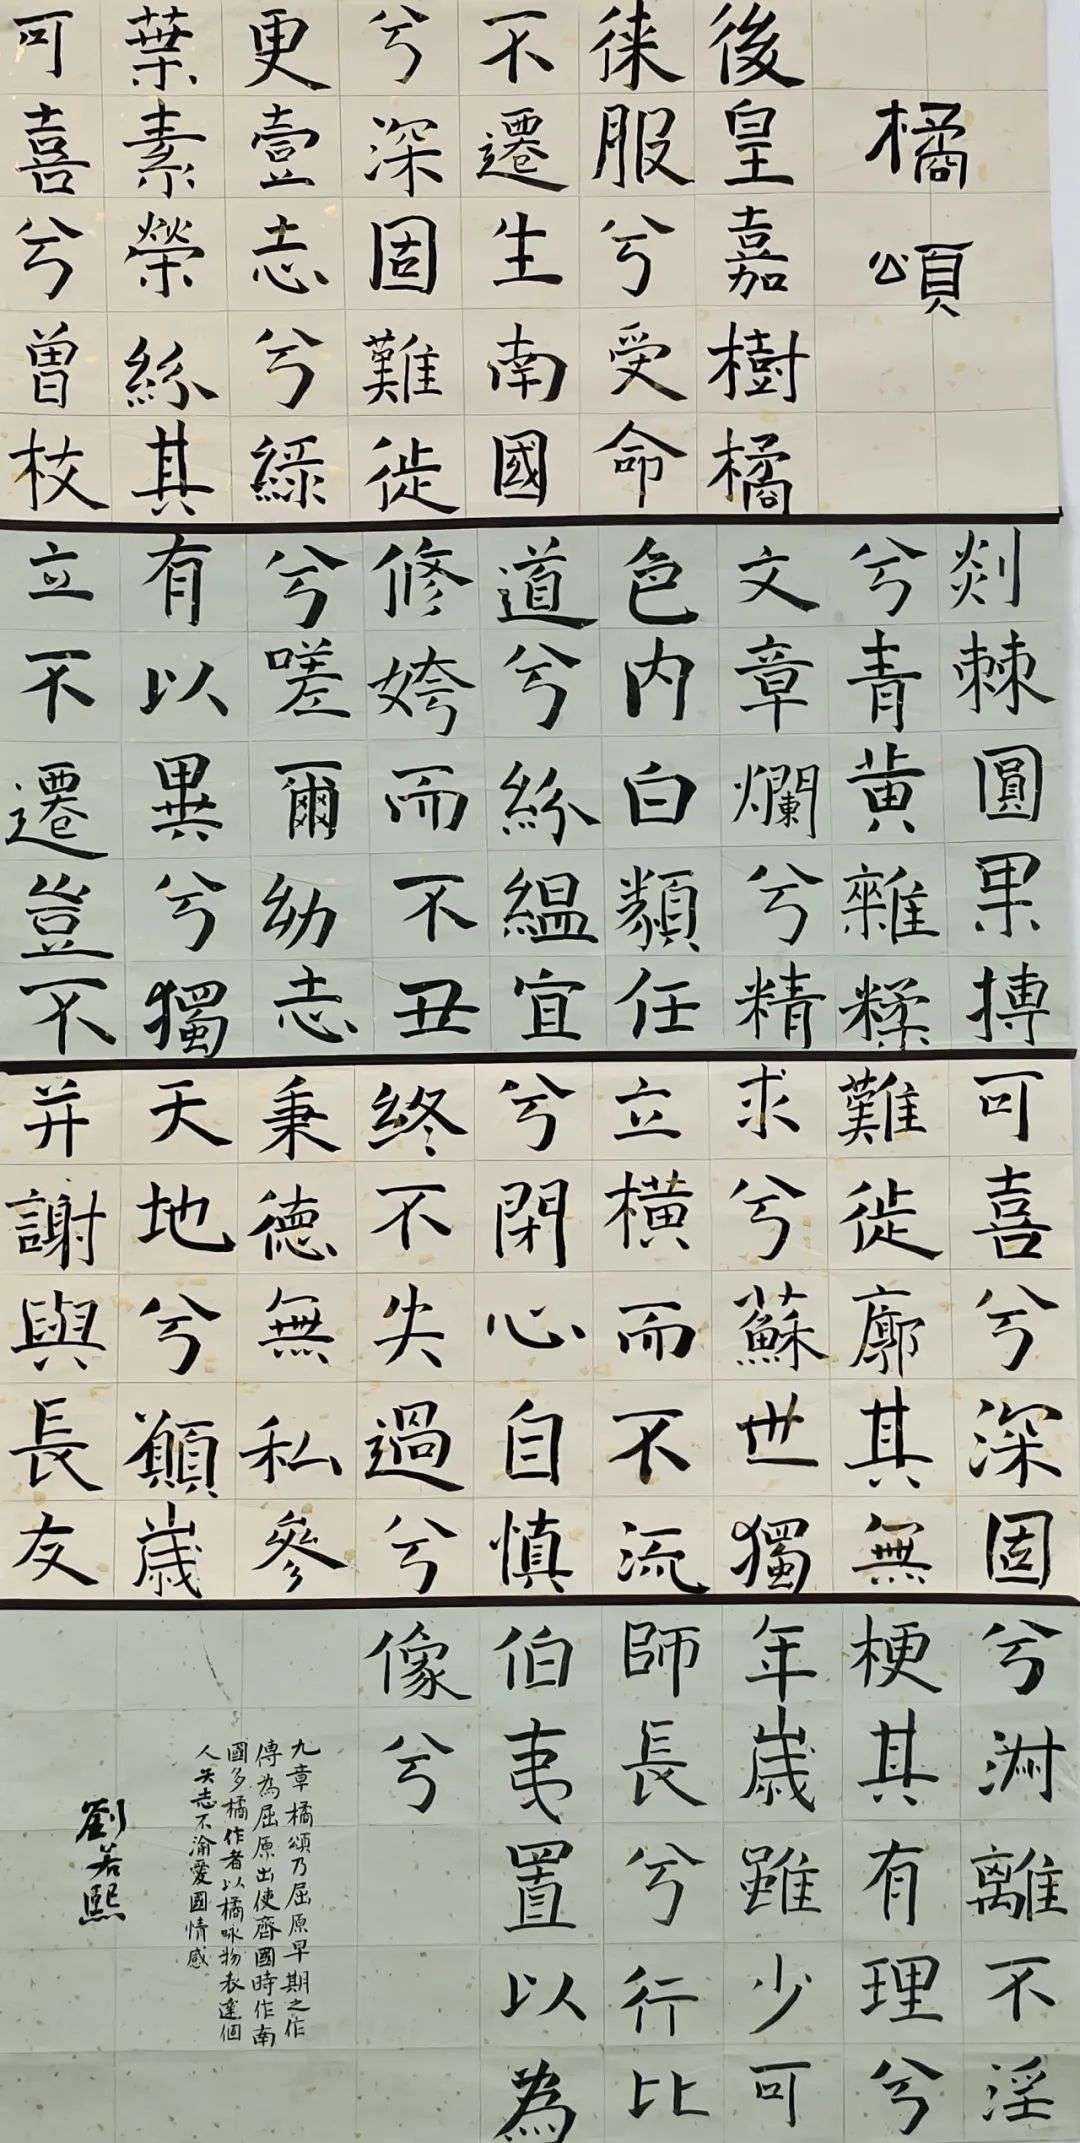 橘頌
後皇嘉樹橘
徕服兮受命
不遷生南國
兮深固難徙
更壹志兮綠
葉素榮紛其
可喜兮曾枝
剡棘圓果摶
兮青黃雜糅
文章爛兮精
色内白類任
道兮紛縕宜
修姱而不丑
兮嗟爾幼志
有以異兮獨
立不遷豈不
可喜兮深固
難徙廓其無
求兮蘇世獨
立橫而不流
兮閉心自慎
終不失過兮
秉德無私參
天地兮願歲
并謝與長友
兮淑離不淫
梗其有理兮
年歲雖少可
師長兮行比
伯夷置以為
像兮
九章橘頌乃屈原早期之作
傳為屈原出使齊國時作南
國多橘作者以橘咏物表達個
人矢志不渝愛國情感
劉若熙